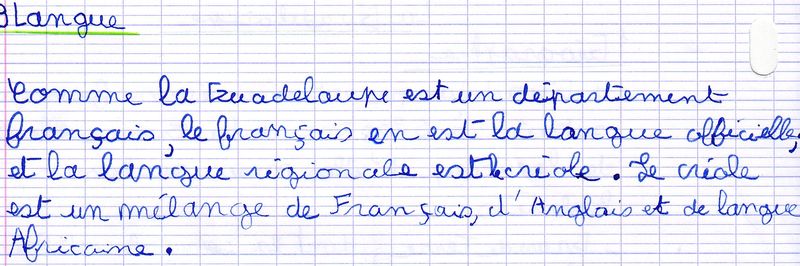 Langue
Comme la Guadeloupe est un département
français, le français en est la langue officielle,
et la langue régionale est le créole. Le créole
est un mélange de Français, d'Anglais et de langue
Africaine.